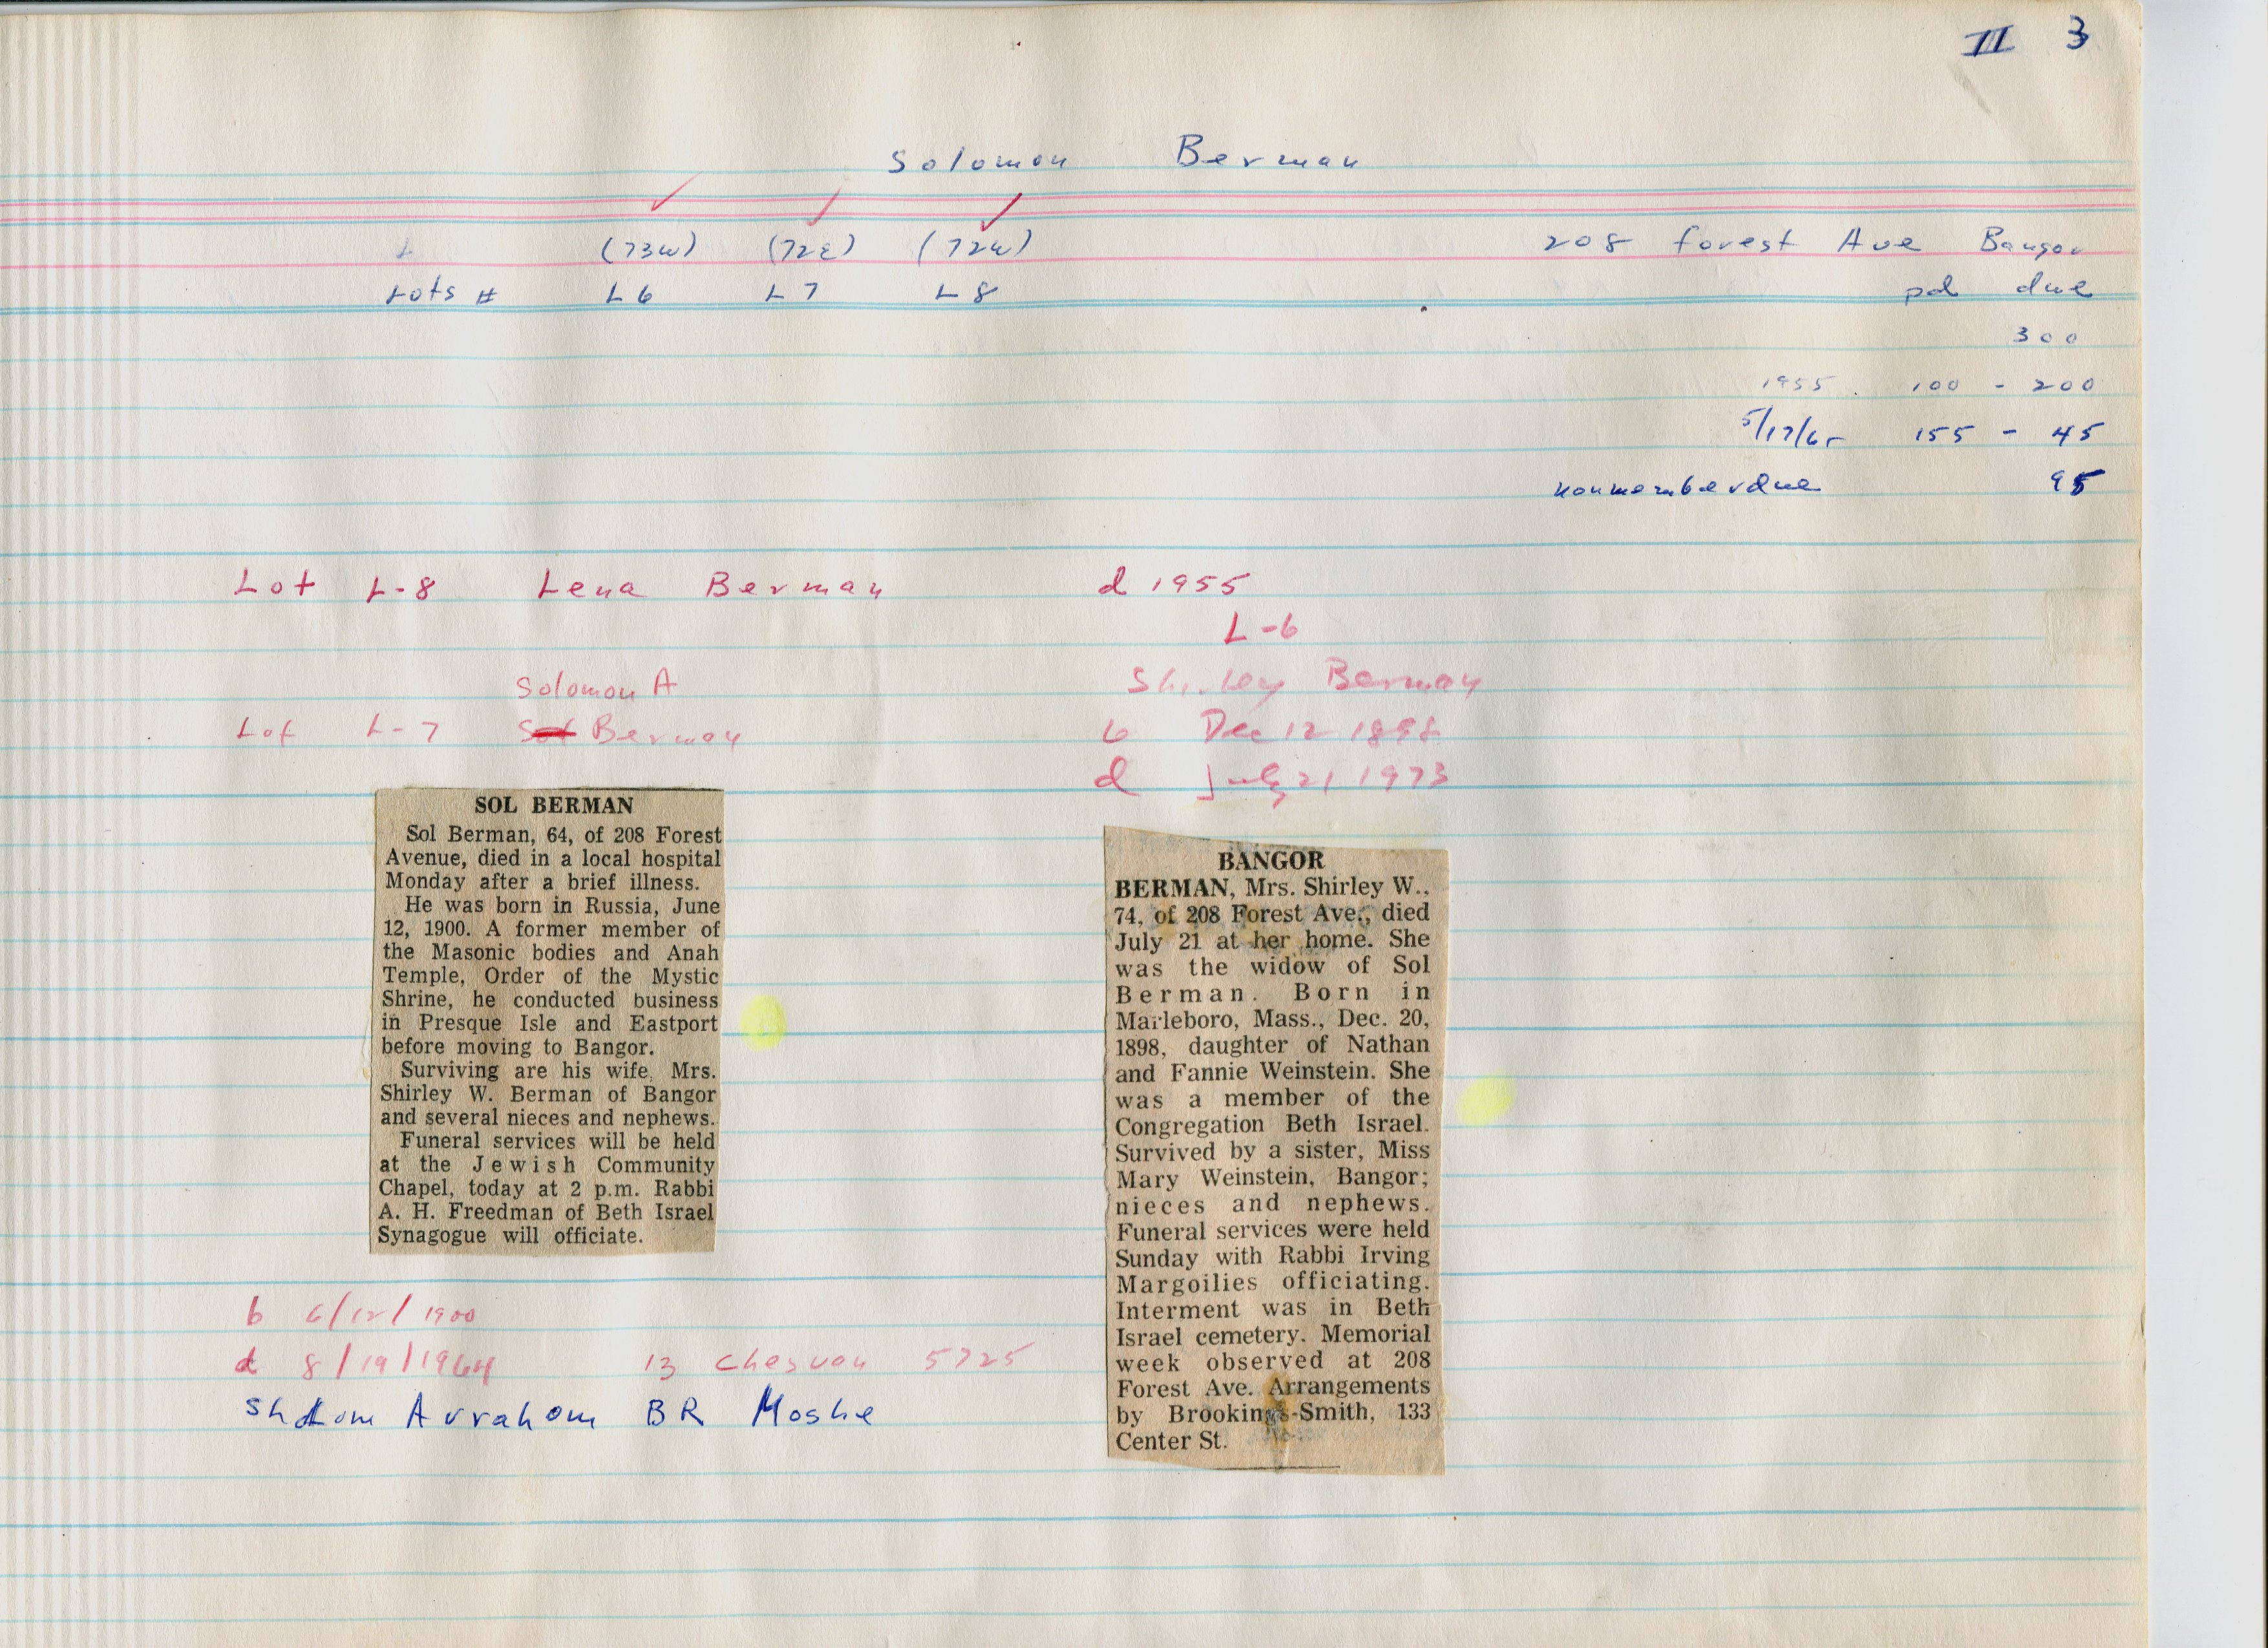 II 3
Solomon Berman
(73W) (72E) (72W) 208 Forest Ave Bangor
Lots # L6 L7 L8 pd due
300
1955 100 - 200
5/17/65 155 - 45
nonmember due 95
Lot L-8 Lena Berman d 1955
L-6
Solomon A Shirley Berman
Lot L-7 Sol Berman b Dec 12 1898
d July 21 1973
SOL BERMAN
Sol Berman, 64, of 208 Forest
Avenue, died in a local hospital
Monday after a brief illness.
He was born in Russia, June
12, 1900. A former member of
the Masonic bodies and Anah
Temple, Order of the Mystic
Shrine, he conducted business
in Presque Isle and Eastport
before moving to Bangor.
Surviving are his wife, Mrs.
Shirley W. Berman of Bangor
and several nieces and nephews.
Funeral services will be held
at the Jewish Community
Chapel, today at 2 p.m. Rabbi
A. H. Freedman of Beth Israel
Synagogue will officiate.
BANGOR
BERMAN, Mrs. Shirley W.,
74, of 208 Forest Ave., died
July 21 at her home. She
was the widow of Sol
Berman. Born in
Marleboro, Mass., Dec. 20,
1898, daughter of Nathan
and Fannie Weinstein. She
was a member of the
Congregation Beth Israel.
Survived by a sister, Miss
Mary Weinstein, Bangor;
nieces and nephews.
Funeral services were held
Sunday with Rabbi Irving
Margoilies officiating.
Interment was in Beth
Israel cemetery. Memorial
week observed at 208
Forest Ave. Arrangements
by Brookings-Smith, 133
Center St.
b 6/12/1900
d 8/19/1964 13 Chesvan 5725
Avrahom BR Moshe